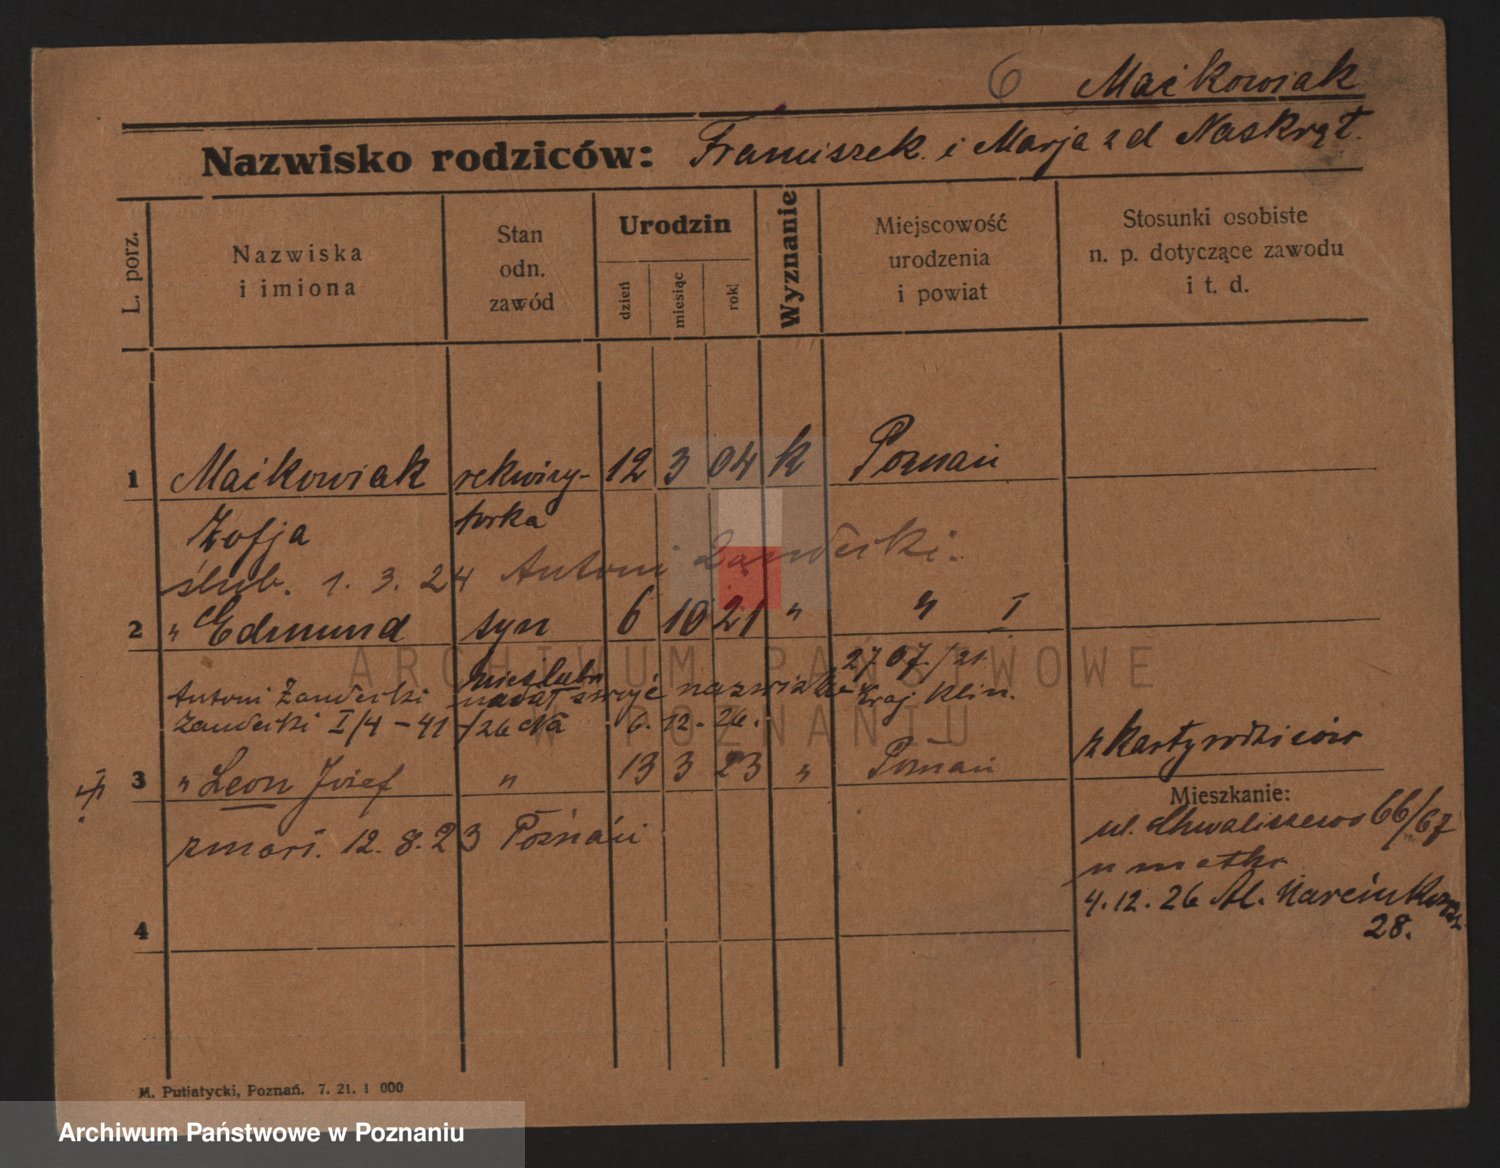 6 Maćkowiak
Nazwisko rodziców: Franciszek i Marja z d Naskręt.
L. porz.
Nazwiska
i imiona
Stan
odn.
zawód
Urodzin
dzień
miesiąc
rok
Wyznanie
Miejscowość
urodzenia
i powiat
Stosunki osobiste
n. p. dotyczące zawodu
i t. d.
1 Maćkowiak rekwizy- 12 3 04 k Poznań
Zofja torka
ślub. 1. 3. 24 Antoni
2 " Edmund syn 6 10 21 " " I
nieślubn 27 07/21
Antoni nadał swoje nazwisko
I/4-41 /26 6. 12. 26.
z karty rodziców
3 " Leon Józef " 13 3 23 " Poznań
Mieszkanie:
zmarł. 12. 8. 23 Poznań
ul. Chwaliszewo 66/67
u matki
4. 12. 26 Al. Marcinkowsk.
28.
4
M. Putiatycki, Poznań. 7. 21. 1 000
ARCHIWUM PAŃSTWOWE
W POZNANIU
Archiwum Państwowe w Poznaniu